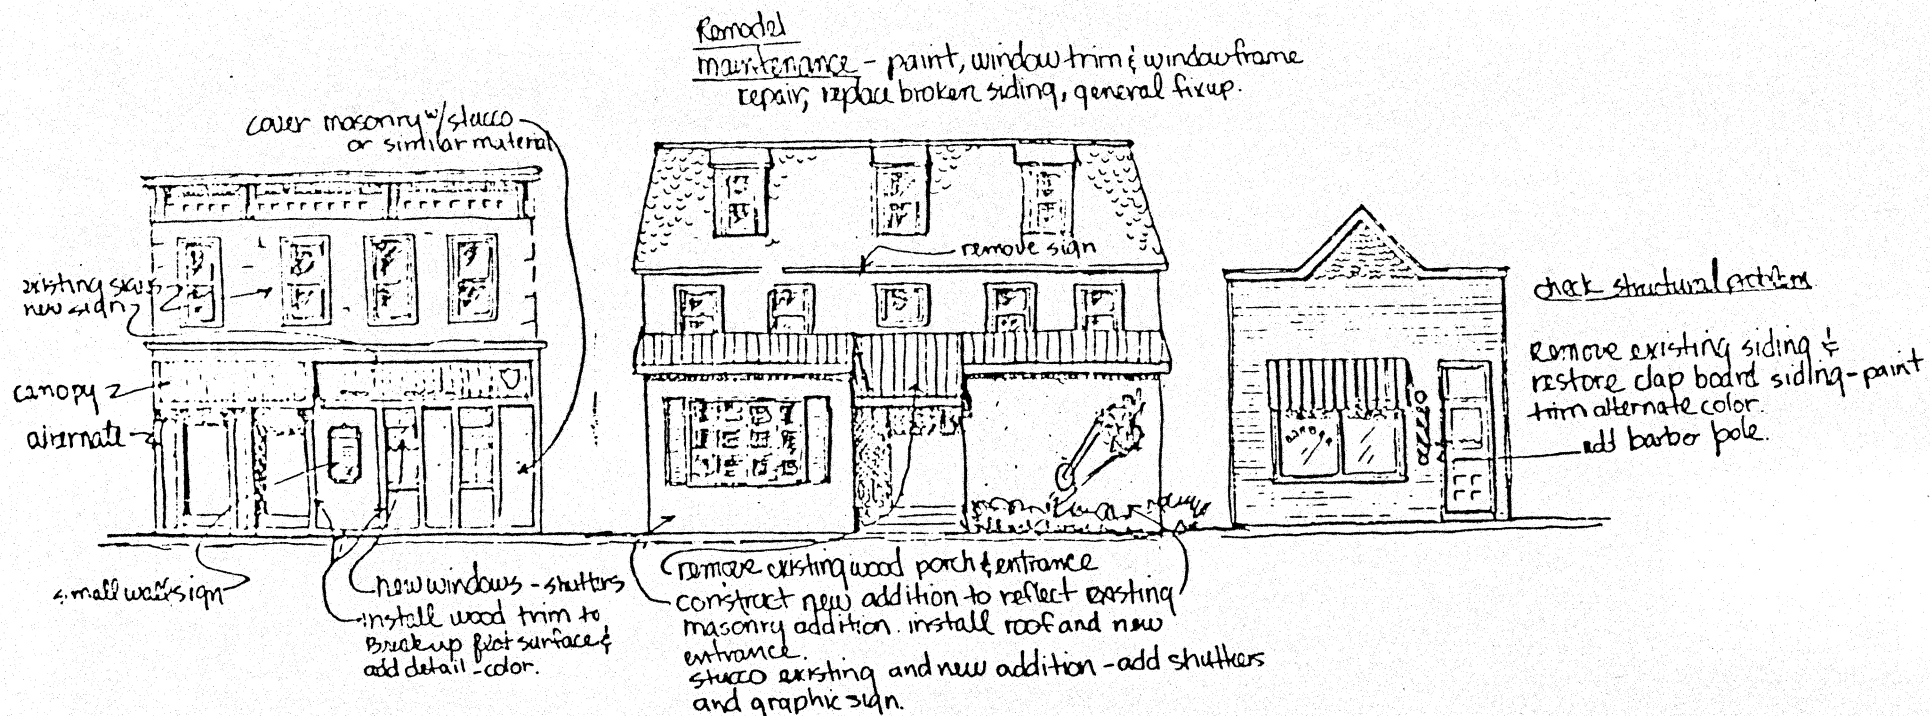 Remodel
maintenance - paint, window trim & window frame
repair, replace broken siding, general fixup.
cover masonry w/stucco
or similar material
remove sign
existing
new sign
canopy
alternate
small wall sign
new windows - shutters
install wood trim to
Break up flat surface &
add detail - color.
remove existing wood porch & entrance
construct new addition to reflect existing
masonry addition. install roof and new
entrance.
stucco existing and new addition - add shutters
and graphic sign.
check structural
Remove existing siding &
restore clap board siding - paint
trim alternate color.
add barber pole.
BARBER